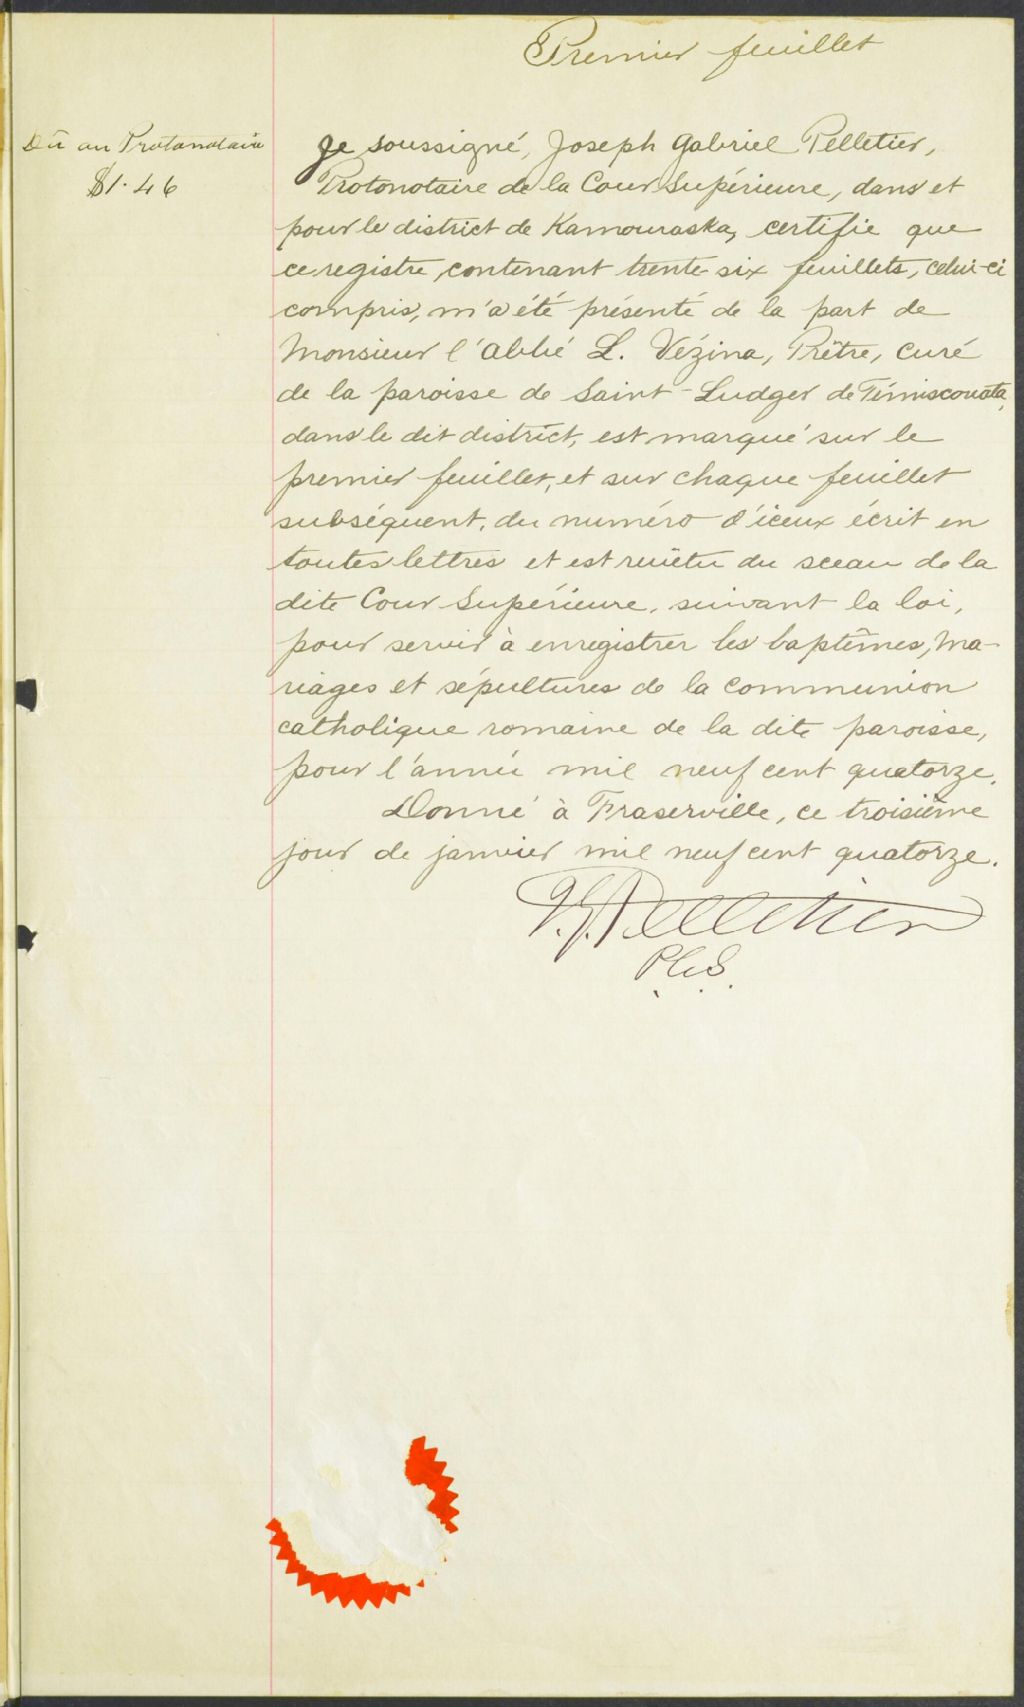 Premier feuillet
Dû au Protonotaire
$1.46
Je soussigné, Joseph Gabriel Pelletier,
Protonotaire de la Cour Supérieure, dans et
pour le district de Kamouraska, certifie que
ce registre, contenant trente-six feuillets, celui-ci
compris, m'a été présenté de la part de
Monsieur l'abbé L. Vézina, Prêtre, curé
de la paroisse de Saint-Ludger de Témiscouata,
dans le dit district, est marqué sur le
premier feuillet, et sur chaque feuillet
subséquent, du numéro d'iceux écrit en
toutes lettres et est revêtu du sceau de la
dite Cour Supérieure, suivant la loi,
pour servir à enregistrer les baptêmes, ma-
riages et sépultures de la communion
catholique romaine de la dite paroisse,
pour l'année mil neuf cent quatorze.
Donné à Fraserville, ce troisième
jour de janvier mil neuf cent quatorze.
J.G. Pelletier
P.C.S.